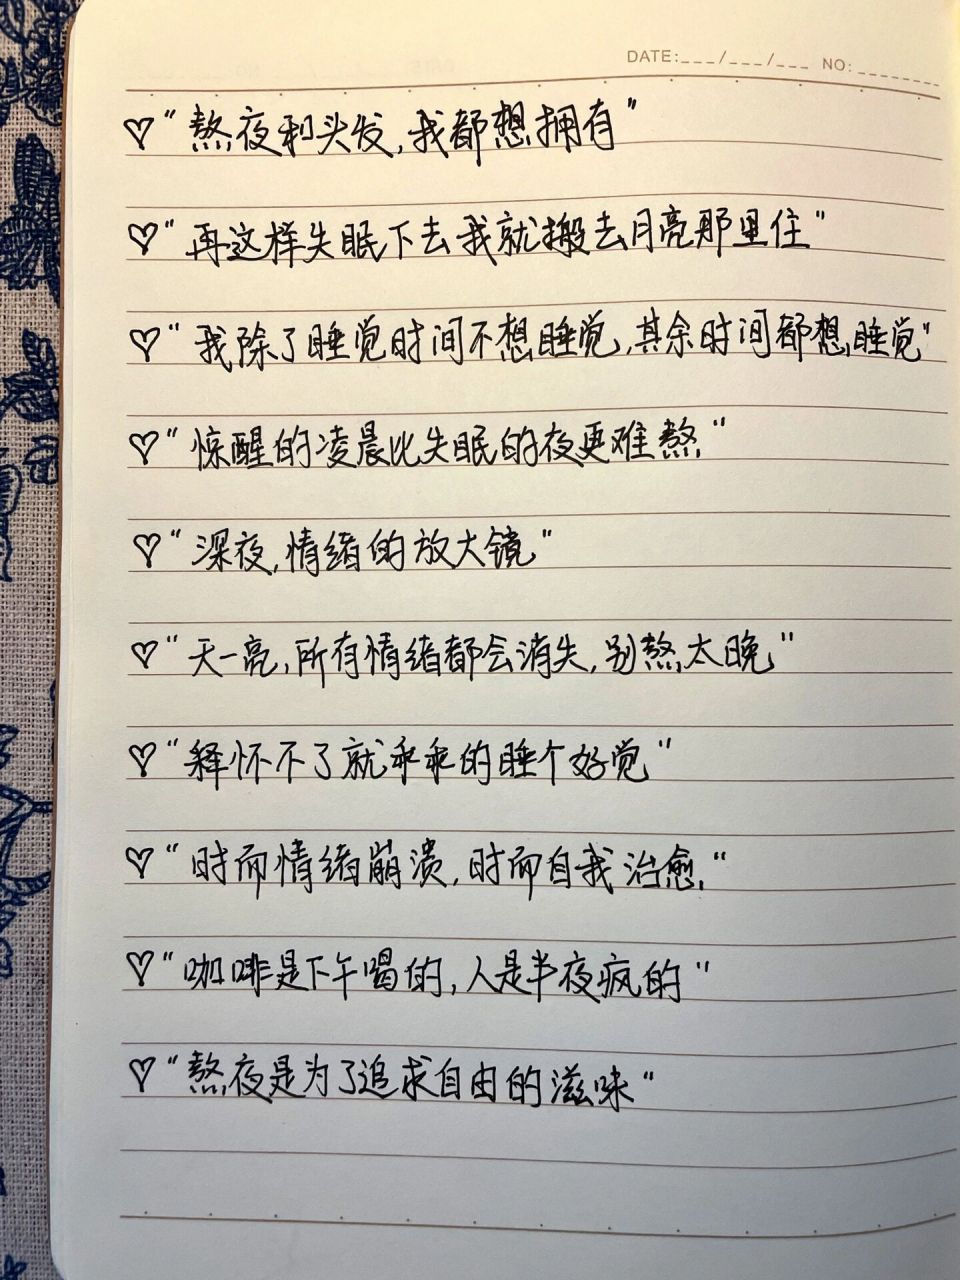 DATE:___/___/___ NO:________
♡"熬夜和头发,我都想拥有"
♡"再这样失眠下去我就搬去月亮那里住"
♡"我除了睡觉时间不想睡觉,其余时间都想睡觉"
♡"惊醒的凌晨比失眠的夜更难熬"
♡"深夜,情绪的放大镜"
♡"天一亮,所有情绪都会消失,别熬太晚"
♡"释怀不了就乖乖的睡个好觉"
♡"时而情绪崩溃,时而自我治愈"
♡"咖啡是下午喝的,人是半夜疯的"
♡"熬夜是为了追求自由的滋味"